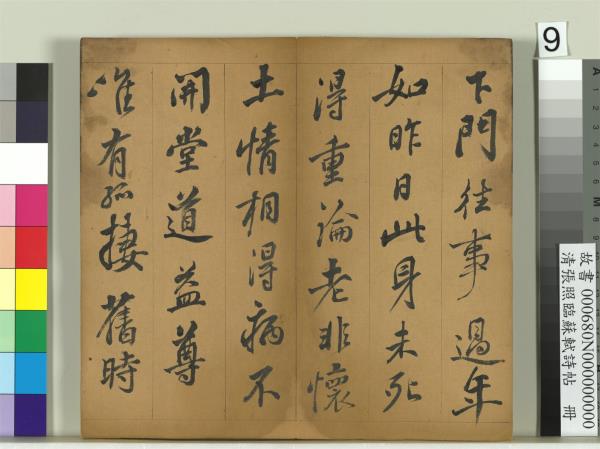 下門往事過年
如昨日此身未死
得重論老非懷
土情相得病不
開堂道益尊
唯有孤棲舊時
9
故書000680N000000000
清張照臨蘇軾詩帖 冊